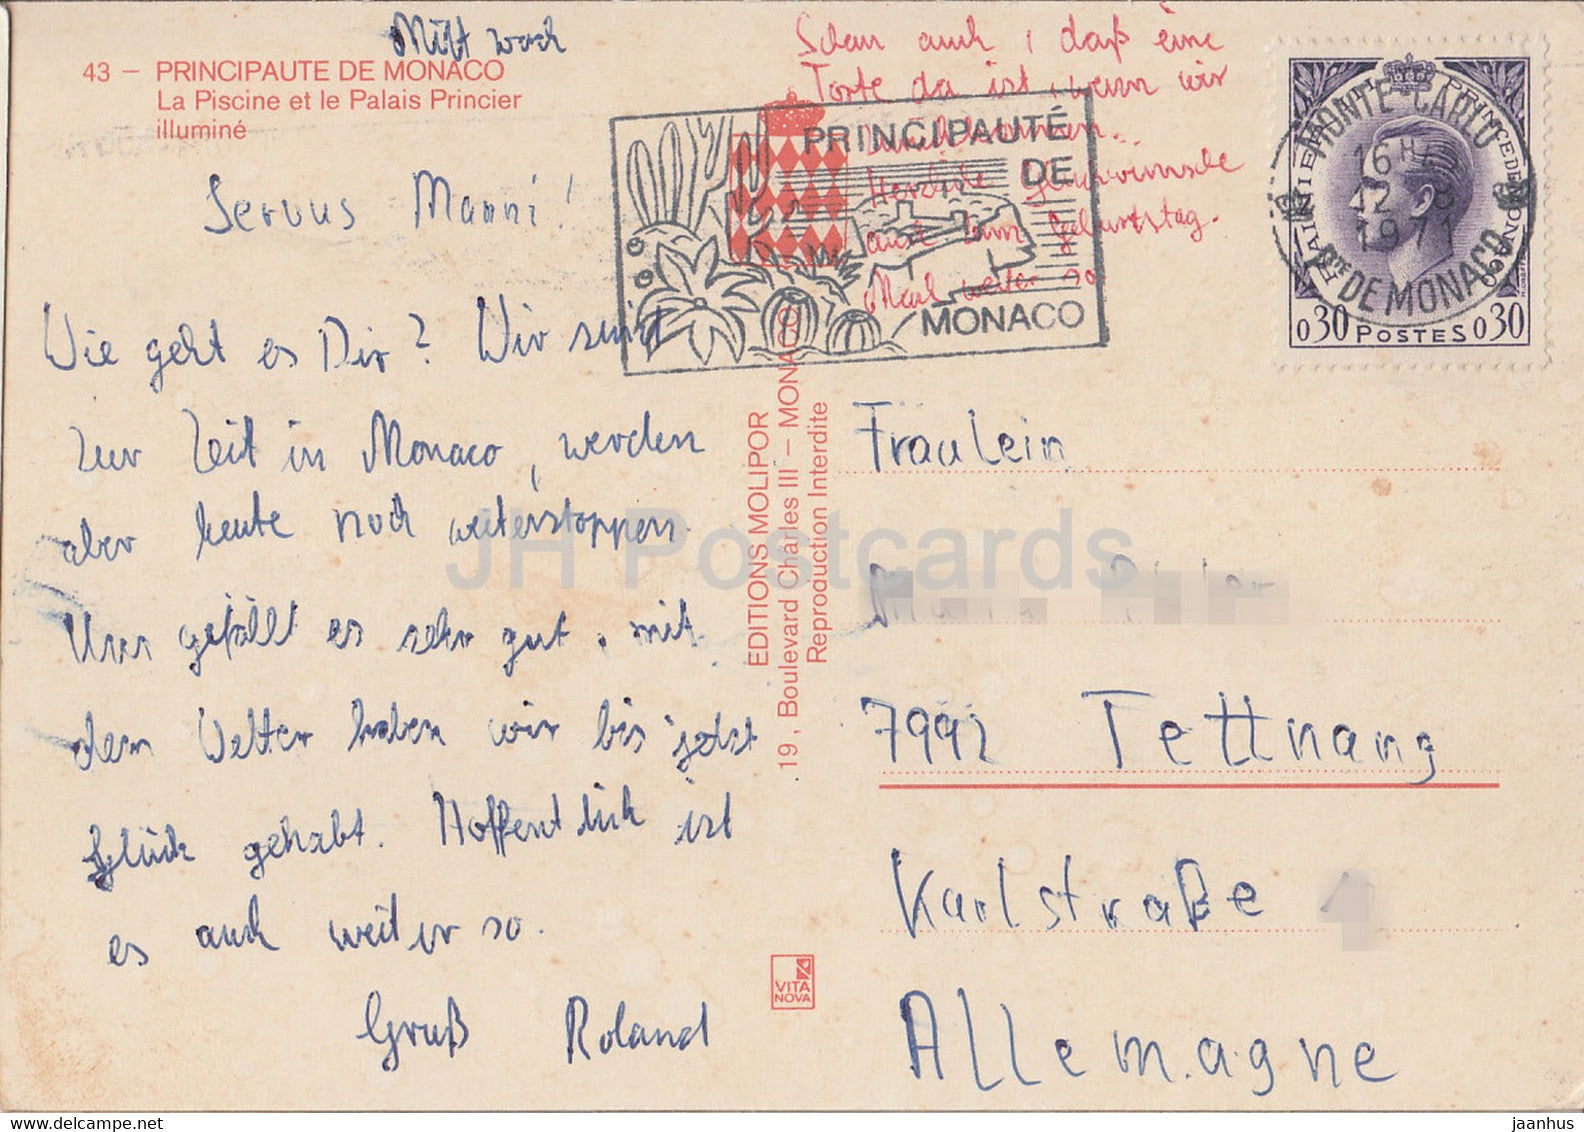 Mittwoch
43 – PRINCIPAUTE DE MONACO
La Piscine et le Palais Princier
illuminé
Servus Manni!
Wie geht es Dir? Wir sind
zur Zeit in Monaco, werden
aber heute noch weiterstoppen.
Uns gefällt es sehr gut, mit
dem Wetter haben wir bis jetzt
Glück gehabt. Hoffentlich ist
es auch weiter so.
Gruß Roland
Schau auch, daß eine
Torte da ist, wenn wir
Herzliche Glückwünsche
auch zum Geburtstag.
Mach weiter so
PRINCIPAUTÉ
DE
MONACO
EDITIONS MOLIPOR
19, Boulevard Charles III – MONACO
Reproduction Interdite
VITA
NOVA
RAINIER III PRINCE DE MONACO
MONTE-CARLO
16H
12
1971
PTE DE MONACO
0,30 POSTES 0,30
Fräulein
7992 Tettnang
Karlstraße 1
Allemagne
JH Postcards
jaanhus
www.delcampe.net